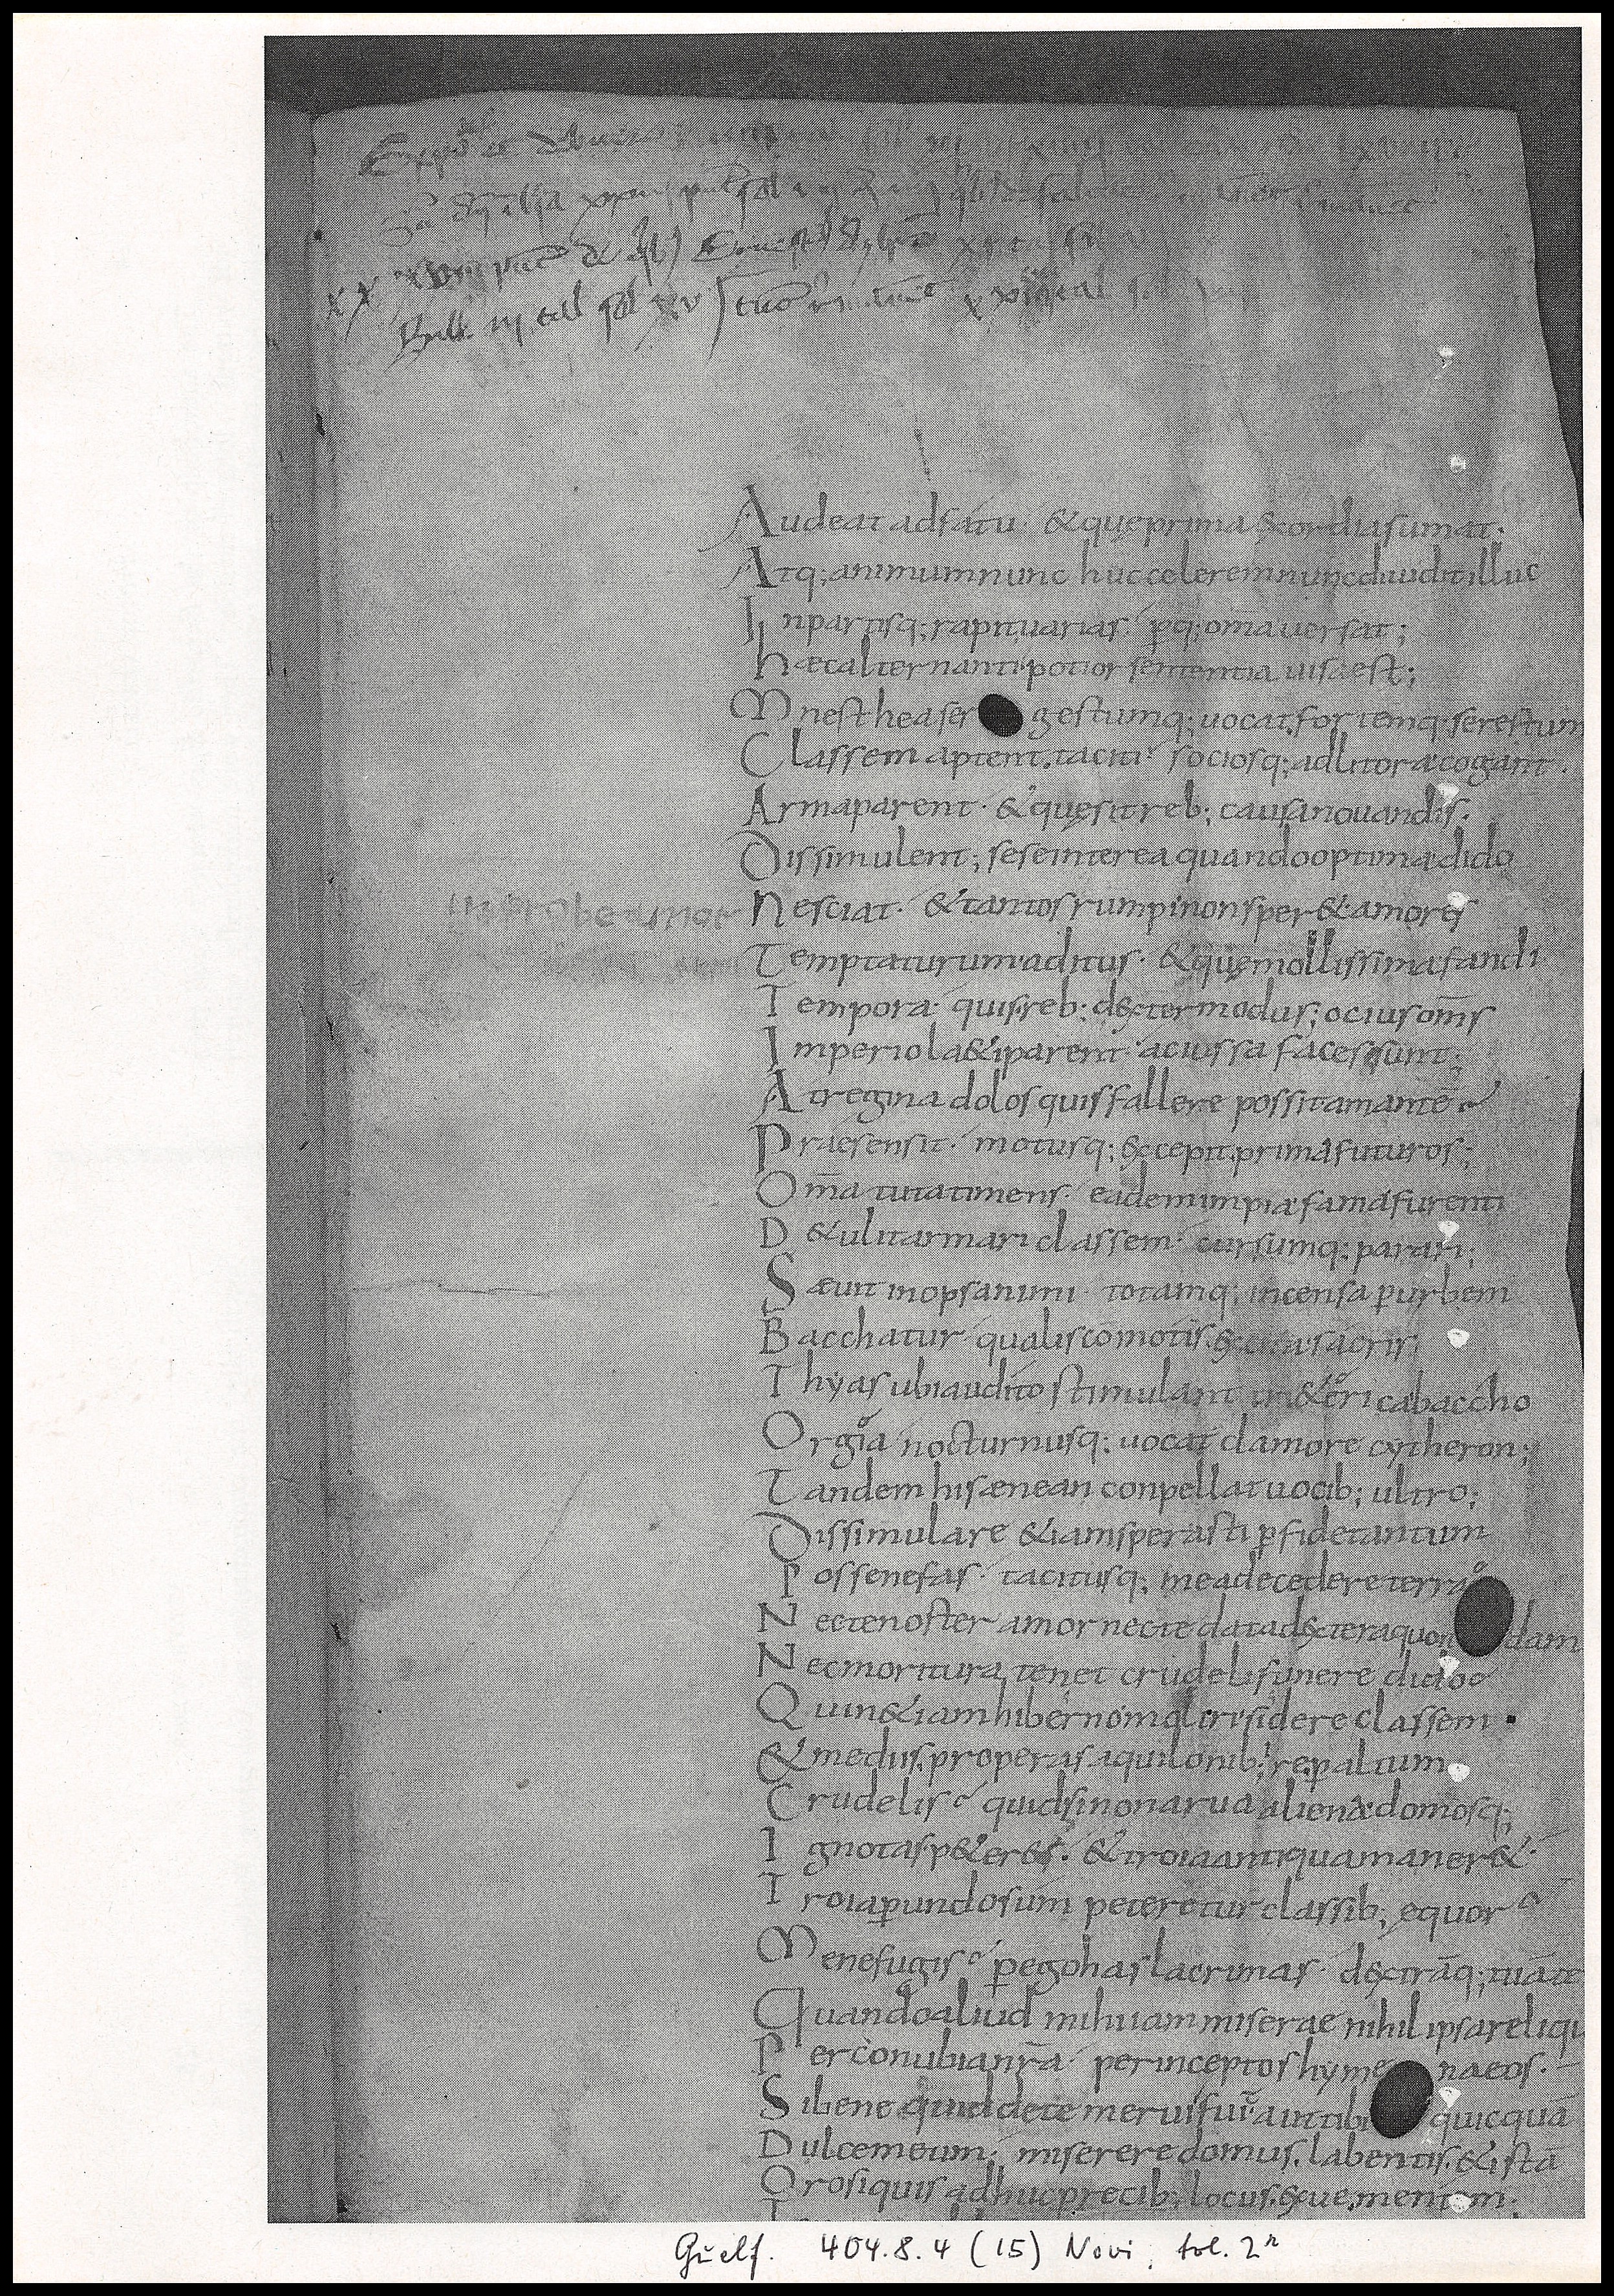 Audeat adfatu · & quę prima exordia sumat ·
Atq; animum nunc huc celerem nunc diuidit illuc
In partisq; rapit uarias · pq; om̅a uersat ;
haec alternanti potior sententia uisa est ;
Mnesthea ser gestumq; uocat fortemq; serestum
Classem aptent taciti · sociosq; ad litora cogant ·
Arma parent · & quę sit reb; causa nouandis ·
Dissimulent ; sese interea quando optima dido
improbe amor Nesciat · & tantos rumpi non sper& amores
Temptaturum aditus · & quę mollissima fandi
Tempora · quis reb; dexter modus ; ocius om̅s
Imperio la&i parent · ac iussa facessunt ;
At regina dolos quis fallere possit amante̅
Praesensit · motusq; excepit prima futuros ;
Om̅a tuta timens · eadem impia fama furenti
D&ulit armari classem · cursumq; parari ;
Saeuit inops animi · totamq; incensa p urbem
Bacchatur qualis co̅motis excita sacris
Thyas ubi audito stimulant tri&erica baccho
Orgia nocturnusq; uocat clamore cytheron ;
Tandem his aenean conpellat uocib; ultro ;
Dissimulare &iam sperasti pfide tantum
Posse nefas · tacitusq; mea decedere terra
Nec te noster amor nec te data dextera quon dam
Nec moritura tenet crudeli funere dido
Quin &iam hiberno moliris sidere classem ·
& mediis properas aquilonib; ire p altum
Crudelis quid si non arua aliena domosq;
Ignotas p&eres · & troia antiqua maner&
Troia p undosum peteretur classib; equor
Mene fugis p ego has lacrimas · dextra̅q; tua̅ te
Quando aliud mihi iam miserae nihil ipsa reliqui
Per conubia nr̅a · per inceptos hyme naeos ·
Si bene quid de te merui fuit aut tibi quicqua̅
Dulce meum ; miserere domus labentis & ista̅
Oro si quis adhuc precib; locus exue mentem ·
Guelf. 404.8.4 (15) Novi, fol. 2r